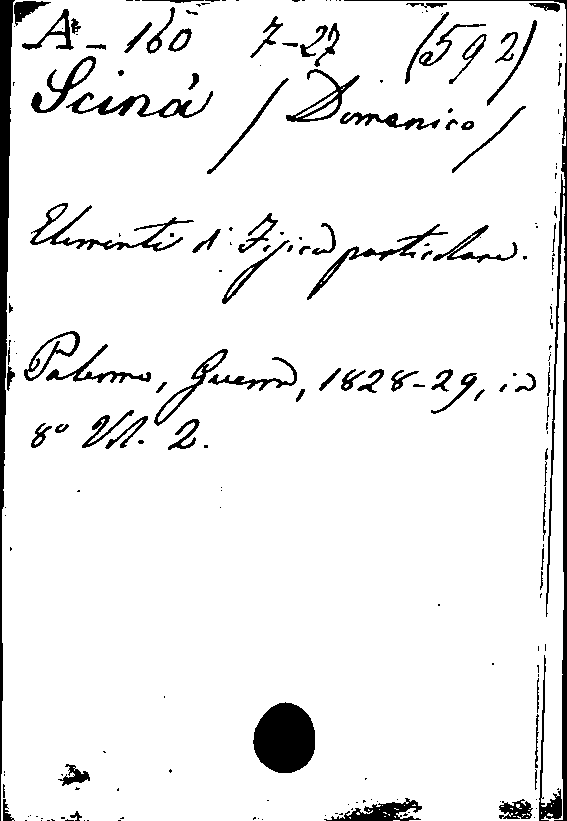 A-160 7-27 (592)
Scinà / Domenico /
Elementi di Fisica particolare.
Palermo, Guerra, 1828-29, in
8º Vol. 2.